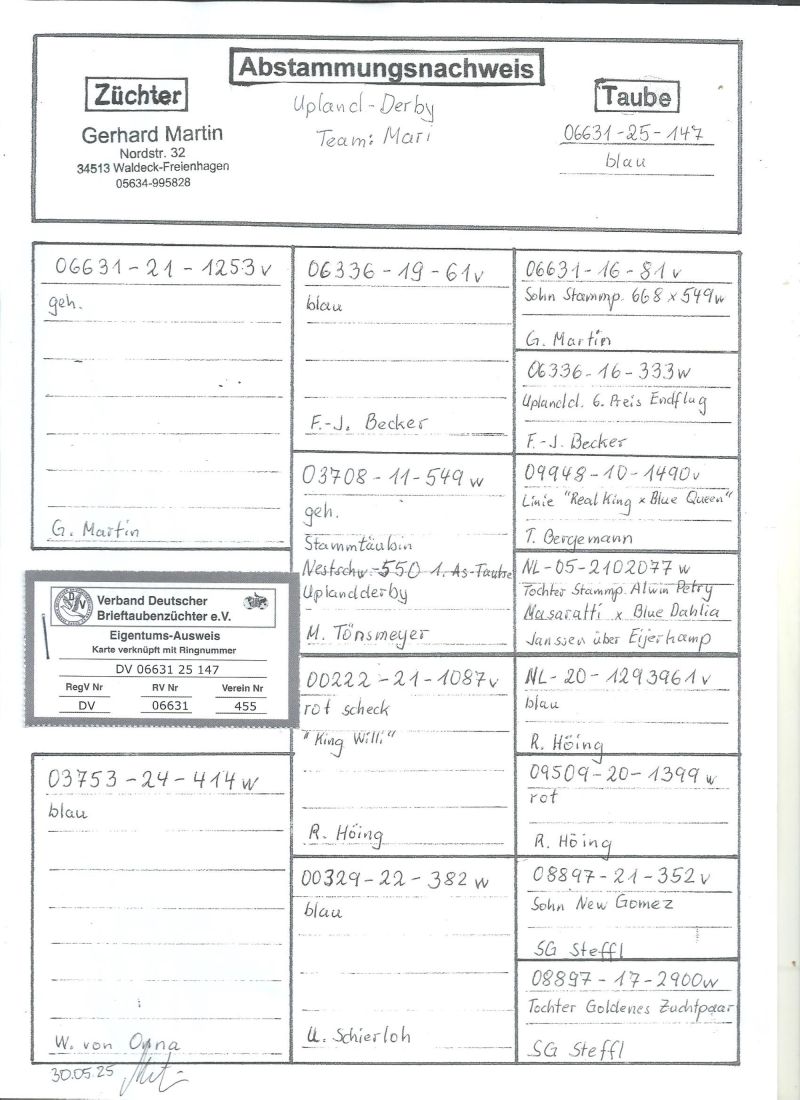 Abstammungsnachweis
Züchter
Gerhard Martin
Nordstr. 32
34513 Waldeck-Freienhagen
05634-995828
Upland-Derby
Team: Mari
Taube
06631-25-147
blau
06631-21-1253v
geh.
G. Martin
Verband Deutscher
Brieftaubenzüchter e.V.
Eigentums-Ausweis
Karte verknüpft mit Ringnummer
DV 06631 25 147
RegV Nr RV Nr Verein Nr
DV 06631 455
03753-24-414w
blau
W. von Opna
30.05.25
06336-19-61v
blau
F.-J. Becker
03708-11-549w
geh.
Stammtäubin
Nestschw.-550 1. As-Taube
Uplandderby
M. Tönsmeyer
00222-21-1087v
rot scheck
"King Willi"
R. Höing
00329-22-382w
blau
U. Schierloh
06631-16-81v
Sohn Stammp. 668 x 549w
G. Martin
06336-16-333w
Uplandd. 6. Preis Endflug
F.-J. Becker
09948-10-1490v
Linie "Real King x Blue Queen"
T. Bergemann
NL-05-2102077w
Tochter Stammp. Alwin Petry
Masaratti x Blue Dahlia
Janssen über Eijerkamp
NL-20-1293961v
blau
R. Höing
09509-20-1399w
rot
R. Höing
08897-21-352v
Sohn New Gomez
SG Steffl
08897-17-2900w
Tochter Goldenes Zuchtpaar
SG Steffl